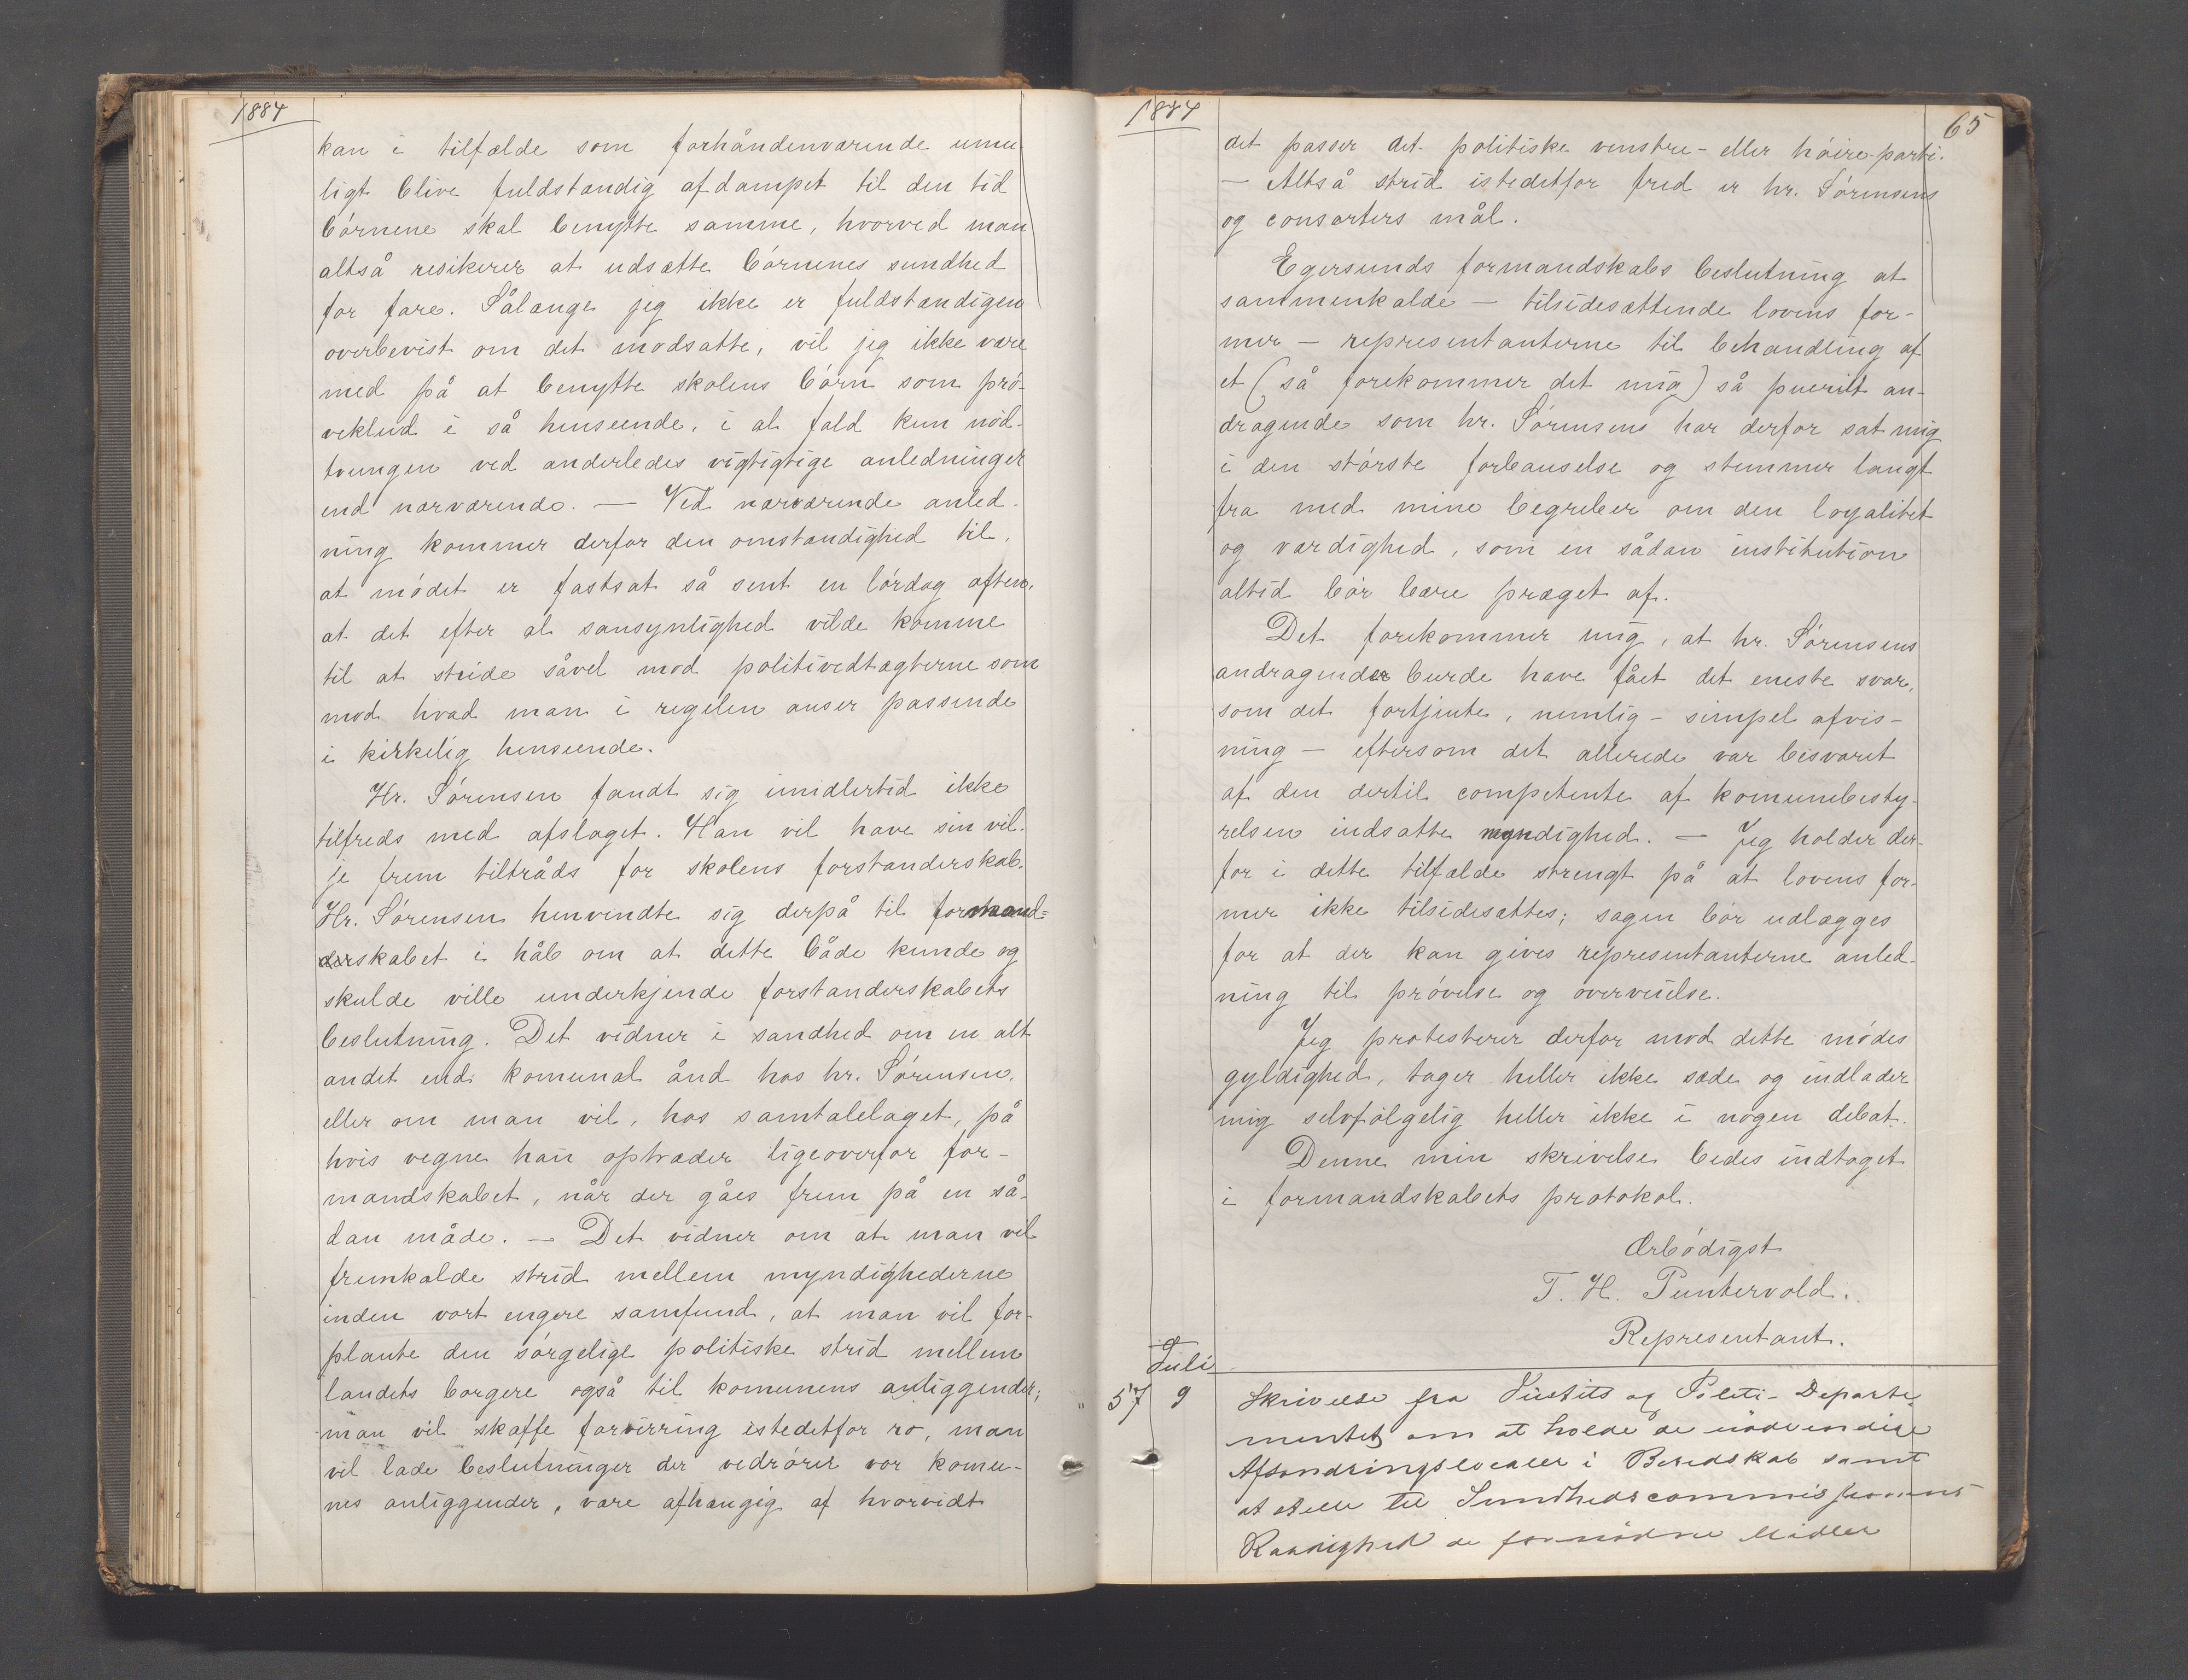 1884
kan i tilfælde som forhåndenværende umu-
ligt blive fuldstændig afdampet til den tid
børnene skal benytte samme, hvorved man
altså risikerer at udsætte børnenes sundhed
for fare. Sålænge jeg ikke er fuldstændigen
overbevist om det modsatte, vil jeg ikke være
med på at benytte skolens børn som prø-
veklud i så henseende, i al fald kun nød-
tvungen ved anderledes vigtigtige anledninger
end nærværende. — Ved nærværende anled-
ning kommer derfor den omstændighed til,
at mødet er fastsat så sent en lørdag aften,
at det efter al sansynlighed vilde komme
til at stride såvel mod politivedtægterne som
mod hvad man i regelen anser passende
i kirkelig henseende.
Hr. Sørensen fandt sig imidlertid ikke
tilfreds med afslaget. Han vil have sin vil-
je frem tiltråds for skolens forstanderskab.
Hr. Sørensen henvendte sig derpå til formand=
derskabet i håb om at dette både kunde og
skulde ville underkjende forstanderskabets
beslutning. Det vidner i sandhed om en alt
andet end komunal ånd hos hr. Sørensen,
eller om man vil, hos samtalelaget, på
hvis vegne han optræder ligeoverfor for-
mandskabet, når der gåes frem på en så-
dan måde. — Det vidner om at man vil
fremkalde strid mellem myndighederne
inden vort engere samfund, at man vil for-
plante den sørgelige politiske strid mellem
landets borgere også til komunens anliggender;
man vil skaffe forvirring istedetfor ro, man
vil lade beslutninger der vedrører vor komu-
nes anliggender, være afhængig af hvorvidt
1884
65
det passer det politiske venstre- eller høire-parti.
— Altså strid istedetfor fred er hr. Sørensens
og consorters mål.
Egersunds formandskabs beslutning at
sammenkalde — tilsidesættende lovens for-
mer — representanterne til behandling af
et (så forekommer det mig) så puerilt an-
dragende som hr. Sørensens har derfor sat mig
i den største forbauselse og stemmer langt
fra med mine begreber om den loyalitet
og værdighed, som en sådan institution
altid bør bære præget af.
Det forekommer mig, at hr. Sørensens
andragender burde have fået det eneste svar,
som det fortjente, nemlig – simpel afvis-
ning — eftersom det allerede var besvaret
af den dertil competente af komunebesty-
relsen indsatte myndighed. — Jeg holder der-
for i dette tilfælde strengt på at lovens for-
mer ikke tilsidesættes; sagen bør udlægges
for at der kan gives representanterne anled-
ning til prøvelse og overveielse.
Jeg protesterer derfor mod dette mødes
gyldighed, tager heller ikke sæde og indlader
mig selvfølgelig heller ikke i nogen debat.
Denne min skrivelse bedes indtaget
i formandskabets protokol.
Ærbødigst
T. H. Puntervold.
Representant.
Juli
57 9 Skrivelse fra Justits og Politi-Departe-
mentet om at holde de nødvendige
Afsondringslocaler i Beredskab samt
at stille til Sundhedscommissionens
Raadighed de fornødne Midler